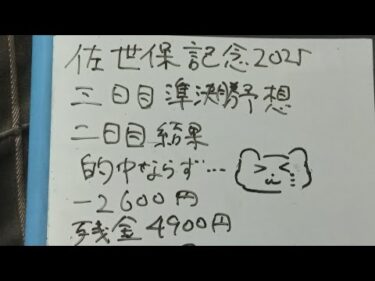 佐世保記念2025
三日目準決勝予想
二日目 結果
的中ならず…
-2600円
残金4900円